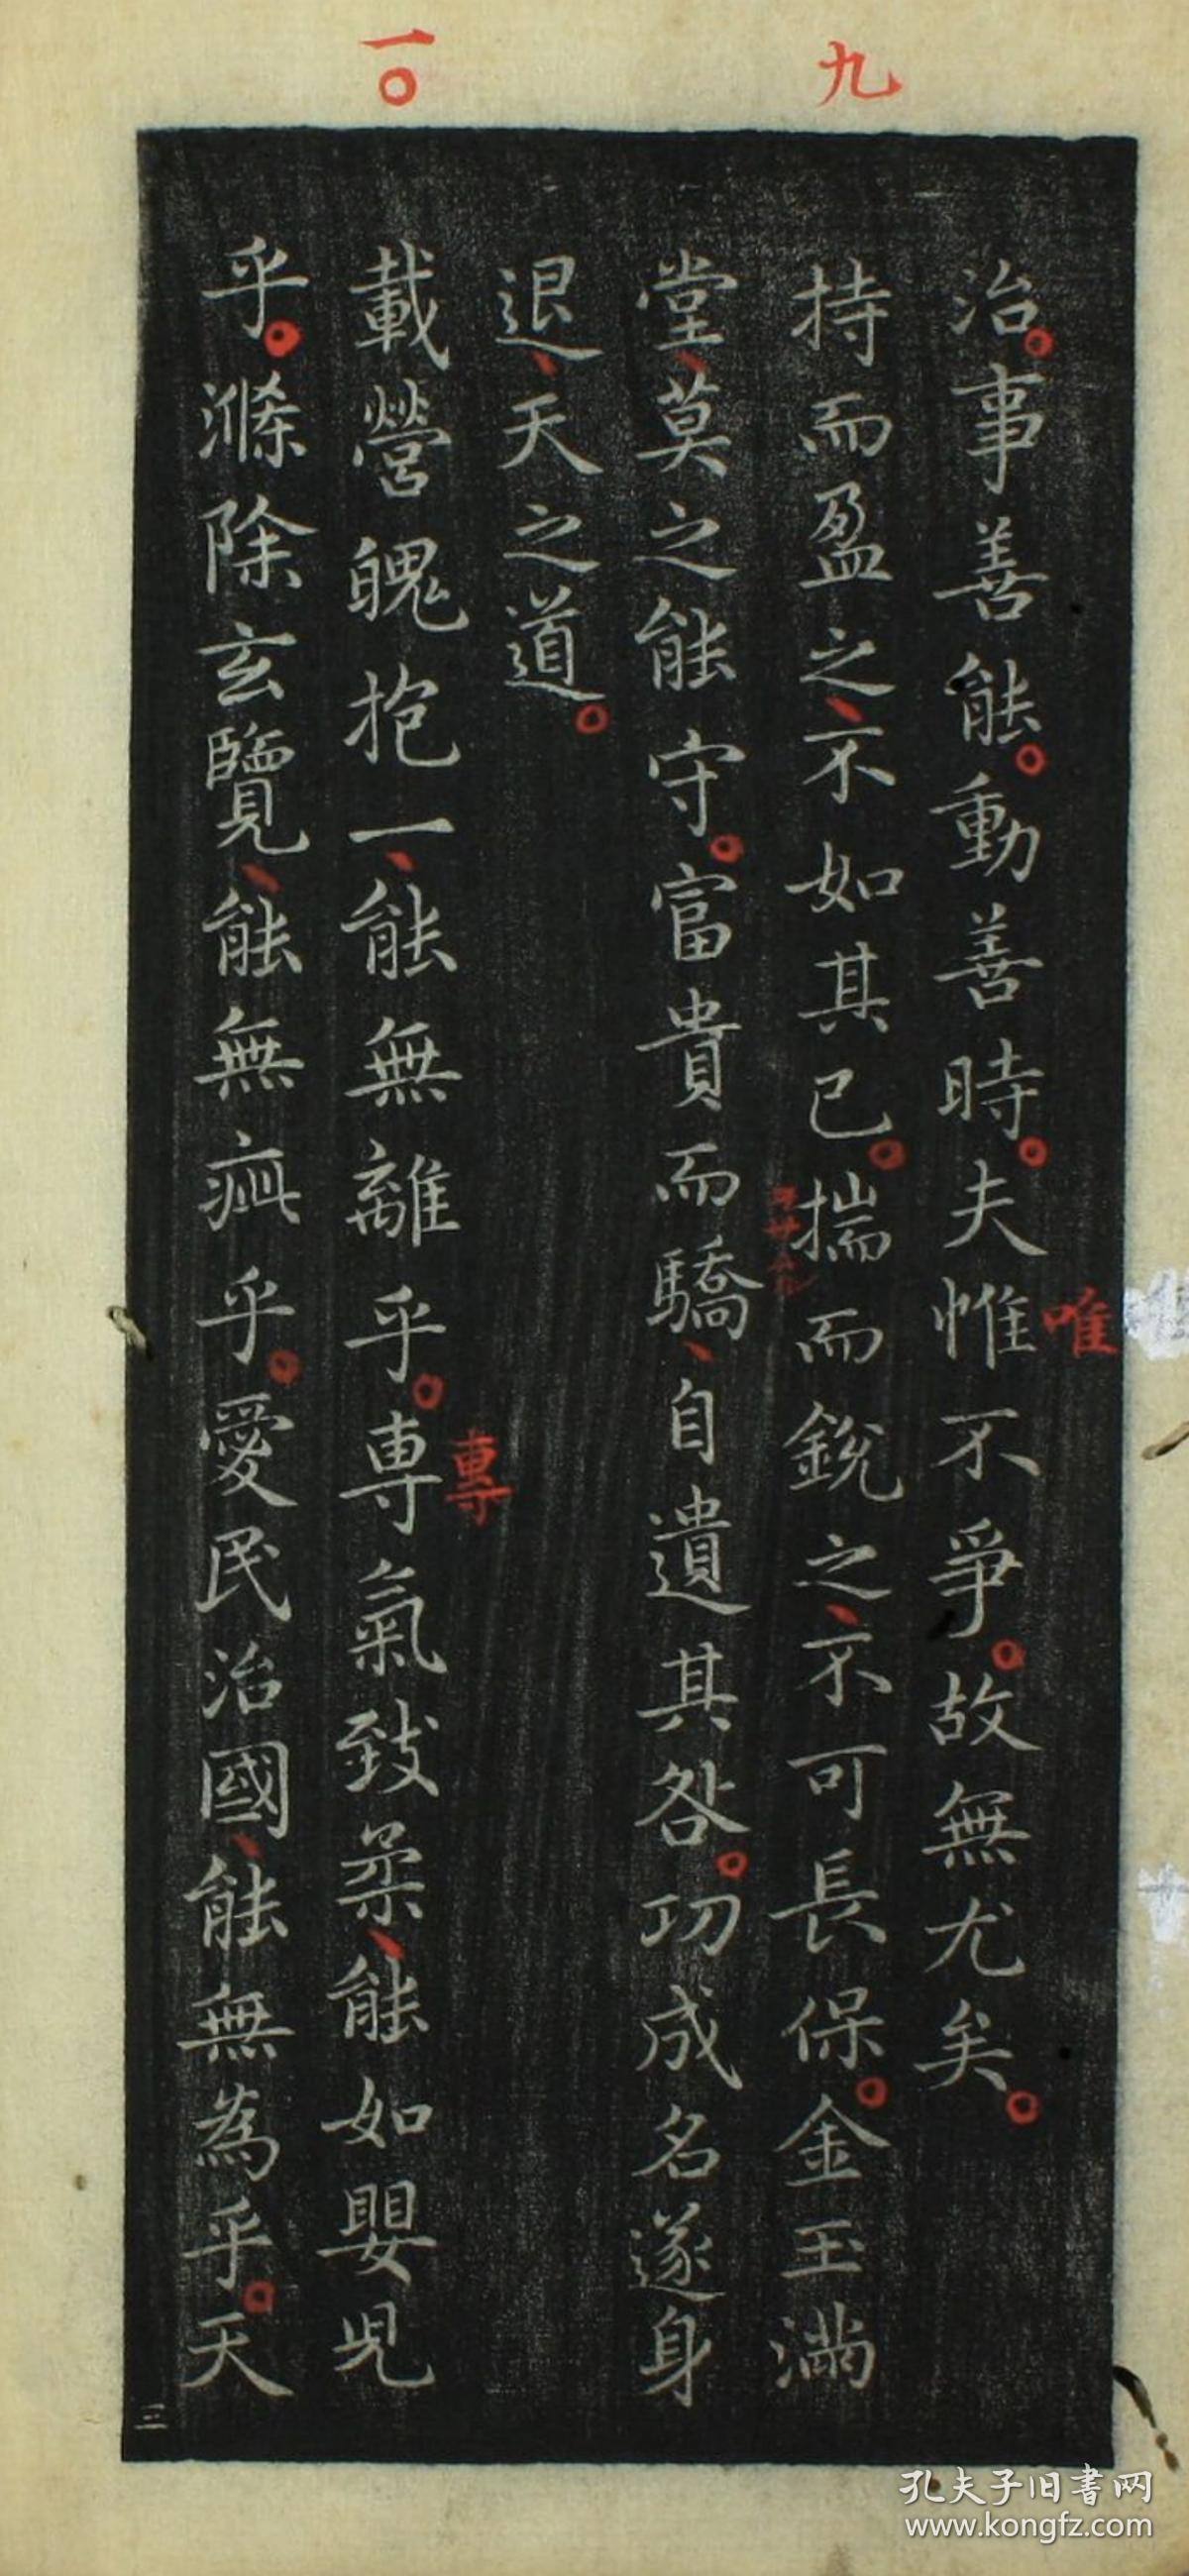 九
一〇
治。事善能。動善時。夫惟不爭。故無尤矣。
唯
持而盈之、不如其已。揣而銳之、不可長保。金玉滿
堂、莫之能守。富貴而驕、自遺其咎。功成名遂身
退、天之道。
載營魄抱一、能無離乎。專氣致柔、能如嬰兒
專
乎。滌除玄覽、能無疵乎。愛民治國、能無為乎。天
三
孔夫子旧書网
www.kongfz.com